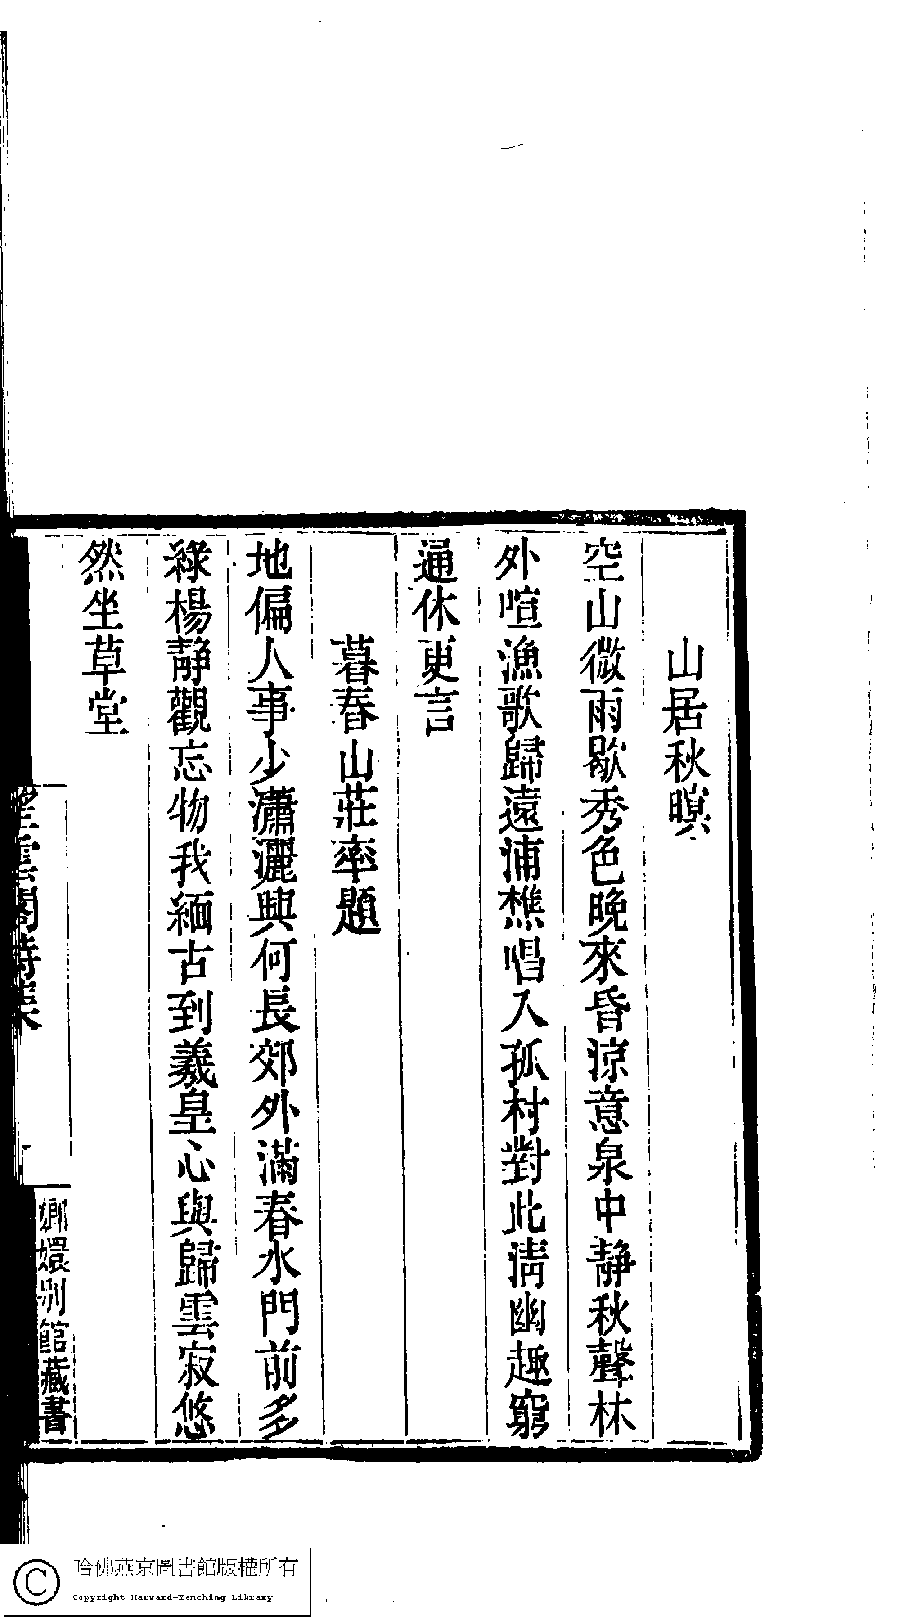 山居秋暝
空山微雨歇秀色晚來昏涼意泉中靜秋聲林
外喧漁歌歸遠浦樵唱入孤村對此清幽趣窮
通休更言
暮春山莊率題
地偏人事少瀟灑興何長郊外滿春水門前多
綠楊靜觀忘物我緬古到羲皇心與歸雲寂悠
然坐草堂
雲閣詩
嫏嬛別館藏書
哈佛燕京圖書館版權所有
Copyright Harvard-Yenching Library